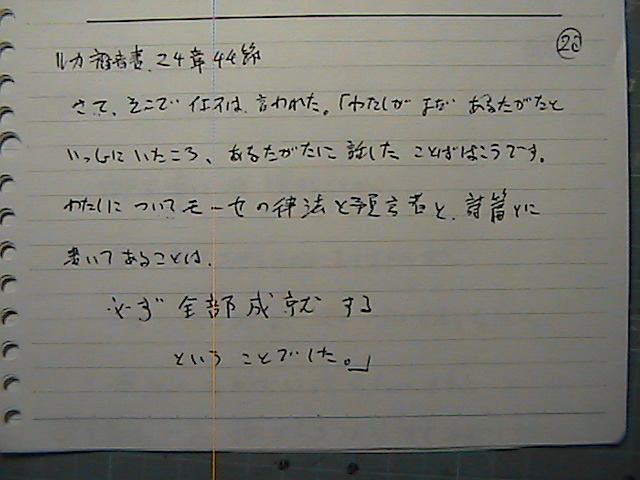 20
ルカ福音書、24章44節
さて、そこでイエスは、言われた。「わたしがまだあなたがたと
いっしょにいたころ、あなたがたに話したことばはこうです。
わたしについてモーセの律法と預言者と、詩篇とに
書いてあることは、
必ず全部成就する
ということでした。」